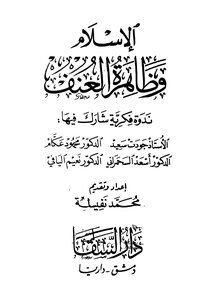 الإسلام
وظاهرة العنف
ندوة فكرية شارك فيها:
الأستاذ جودت سعيد الدكتور محمود عكام
الدكتور أسعد السحمراني الدكتور نعيم اليافي
إعداد وتقديم
محمد نفيسة
دار السقا
دمشق - داريا